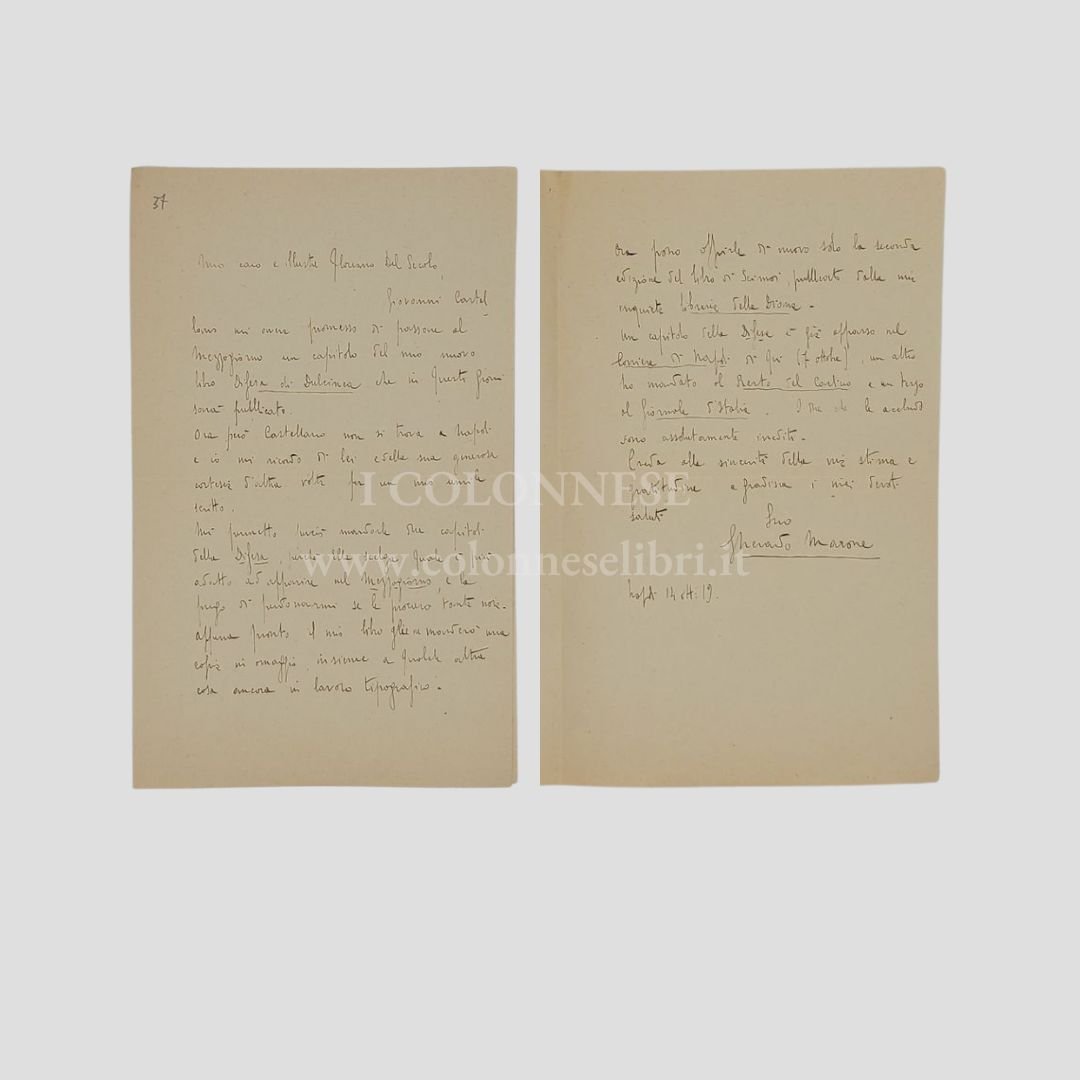 37
Mio caro e illustre Floriano Del Secolo,
Giovanni Castel
lano mi aveva promesso di passare al
Mezzogiorno un capitolo del mio nuovo
libro Difesa di Dulcinea che in questi giorni
sarà pubblicato.
Ora però Castellano non si trova a Napoli
e io mi ricordo di lei e della sua generosa
cortesia d'altra volta per un mio umile
scritto.
Mi permetto perciò mandarle due capitoli
della Difesa, perché ella scelga quale è più
adatto ad apparire nel Mezzogiorno, e la
prego di perdonarmi se le procuro tante noie.
Appena pronto il mio libro gliene manderò una
copia in omaggio, insieme a qualche altra
cosa ancora in lavoro tipografico.
Ora posso offrirle di nuovo solo la seconda
edizione del libro di Scimoi, pubblicato dalla mia
inquieta Libreria della Diana.
Un capitolo della Difesa è già apparso nel
Corriere di Napoli di qui (7 ottobre), un altro
ho mandato al Resto del Carlino e un terzo
al Giornale d'Italia. I due che le accludo
sono assolutamente inediti.
Creda alla sincerità della mia stima e
gratitudine e gradisca i miei devoti
saluti
Suo
Gherardo Marone
Napoli 14 ott. 19.
I COLONNESE
www.colonneselibri.it